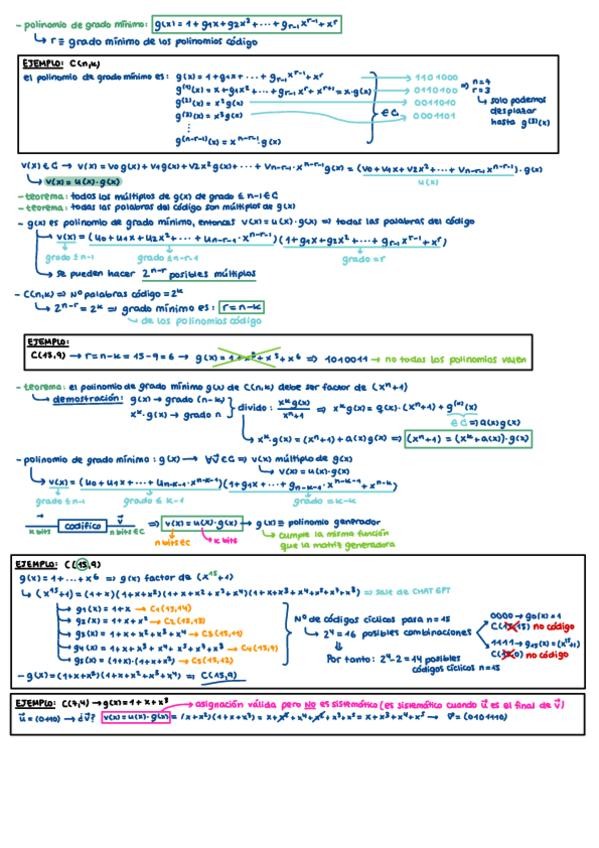 - polinomio de grado mínimo: g(x) = 1 + g1x + g2x² + ··· + gr-1x^r-1 + x^r
↳ r ≡ grado mínimo de los polinomios código
EJEMPLO: C(n,k)
el polinomio de grado mínimo es: g(x) = 1 + g1x + ··· + gr-1x^r-1 + x^r → 1101000
g^(1)(x) = x + g1x² + ··· + gr-1x^r + x^r+1 = x·g(x) → 0110100
g^(2)(x) = x²g(x) → 0011010
g^(3)(x) = x³g(x) → 0001101
⋮
g^(n-r-1)(x) = x^n-r-1·g(x)
} ∈ C
⇒ n=7
r=3
↳ solo podemos
desplazar
hasta g^(3)(x)
v(x) ∈ C → v(x) = v0g(x) + v1g(x) + v2x²g(x) + ··· + vn-r-1·x^n-r-1g(x) = (v0 + v1x + v2x² + ··· + vn-r-1x^n-r-1)·g(x)
u(x)
↳ v(x) = u(x)·g(x)
- teorema: todos los múltiplos de g(x) de grado ≤ n-1 ∈ C
- teorema: todas las palabras del código son múltiplos de g(x)
- g(x) es polinomio de grado mínimo, entonces v(x) = u(x)·g(x) ⇒ todas las palabras del código
→ v(x) = (u0 + u1x + u2x² + ··· + un-r-1·x^n-r-1)(1 + g1x + g2x² + ··· + gr-1x^r-1 + x^r)
grado ≤ n-1 grado ≤ n-r-1 grado = r
↳ se pueden hacer 2^n-r posibles múltiplos
- C(n,k) ⇒ Nº palabras código = 2^k
↳ 2^n-r = 2^k ⇒ grado mínimo es: r = n-k
↳ de los polinomios código
EJEMPLO:
C(15,9) → r = n-k = 15-9 = 6 → g(x) = 1 + x² + x⁵ + x⁶ ⇒ 1010011 → no todos los polinomios valen
- teorema: el polinomio de grado mínimo g(x) de C(n,k) debe ser factor de (x^n+1)
↳ demostración: g(x) → grado (n-k)
x^k·g(x) → grado n
} divido: x^kg(x) / x^n+1 ⇒ x^kg(x) = Q(x)·(x^n+1) + g^(k)(x)
∈ C ⇒ a(x)g(x)
↳ x^k·g(x) = (x^n+1) + a(x)g(x) ⇒ (x^n+1) = (x^k+a(x))·g(x)
- polinomio de grado mínimo: g(x) → ∀v ∈ C ⇒ v(x) múltiplo de g(x)
↳ v(x) = u(x)·g(x)
→ v(x) = (u0 + u1x + ··· + un-k-1·x^n-k-1)(1 + g1x + ··· + gn-k-1x^n-k-1 + x^n-k)
grado ≤ n-1 grado ≤ k-1 grado = n-k
u codifico v ⇒ v(x) = u(x)·g(x) → g(x) ≡ polinomio generador
k bits n bits ∈ C n bits ∈ C k bits ↳ cumple la misma función
que la matriz generadora
EJEMPLO: C(15,9)
g(x) = 1 + ··· + x⁶ ⇒ g(x) factor de (x¹⁵+1)
↳ (x¹⁵+1) = (1+x)(1+x+x²)(1+x+x²+x³+x⁴)(1+x+x⁴)(1+x³+x⁴) ⇒ sale de CHAT GPT
→ g1(x) = 1+x → C1(15,14)
→ g2(x) = 1+x+x² → C2(15,13)
→ g3(x) = 1+x+x²+x³+x⁴ → C3(15,11)
→ g5(x) = (1+x)·(1+x+x²) → C5(15,12)
Nº de códigos cíclicos para n=15
↳ 2⁴ = 16 posibles combinaciones
Por tanto: 2⁴-2 = 14 posibles
códigos cíclicos n=15
0000 → g0(x) = 1
C(15,15) no código
1111 → g15(x) = (x¹⁵+1)
C(15,0) no código
- g(x) = (1+x+x²)(1+x+x²+x³+x⁴) ⇒ C(15,9)
EJEMPLO: C(7,4) → g(x) = 1+x+x³ → asignación válida pero NO es sistemático (es sistemático cuando u es el final de v)
u = (0110) → ¿v? v(x) = u(x)·g(x) = (x+x²)(1+x+x³) = x+x²+x⁴+x²+x³+x⁵ = x+x³+x⁴+x⁵ → v = (0101110)